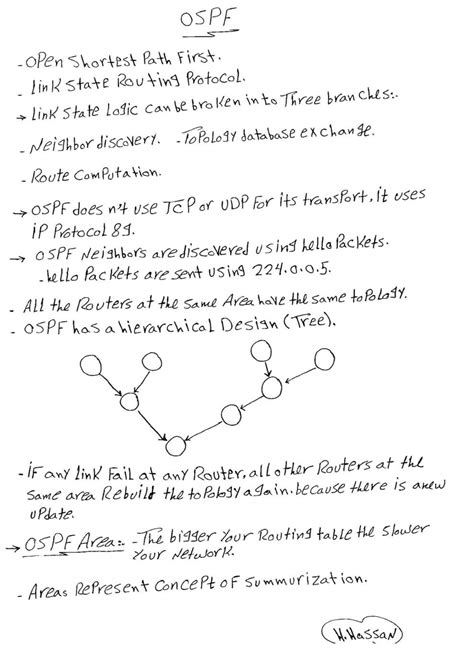 OSPF
- OPen Shortest Path First.
- Link State Routing Protocol.
→ Link State Logic can be broken in to Three branches:.
- Neighbor discovery. - Topology database exchange.
- Route Computation.
→ OSPF does n't use TCP or UDP For its transport, it uses
iP Protocol 89.
→ OSPF Neighbors are discovered using hello Packets.
- hello Packets are sent using 224.0.0.5.
- All the Routers at the same Area have the same topology.
- OSPF has a hierarchical Design (Tree).
- iF any link Fail at any Router, all other Routers at the
same area Rebuild the topology again. because there is a new
update.
→ OSPF Area:. - The bigger Your Routing table the slower
Your Network.
- Areas Represent Concept of Summurization.
H.Hassan